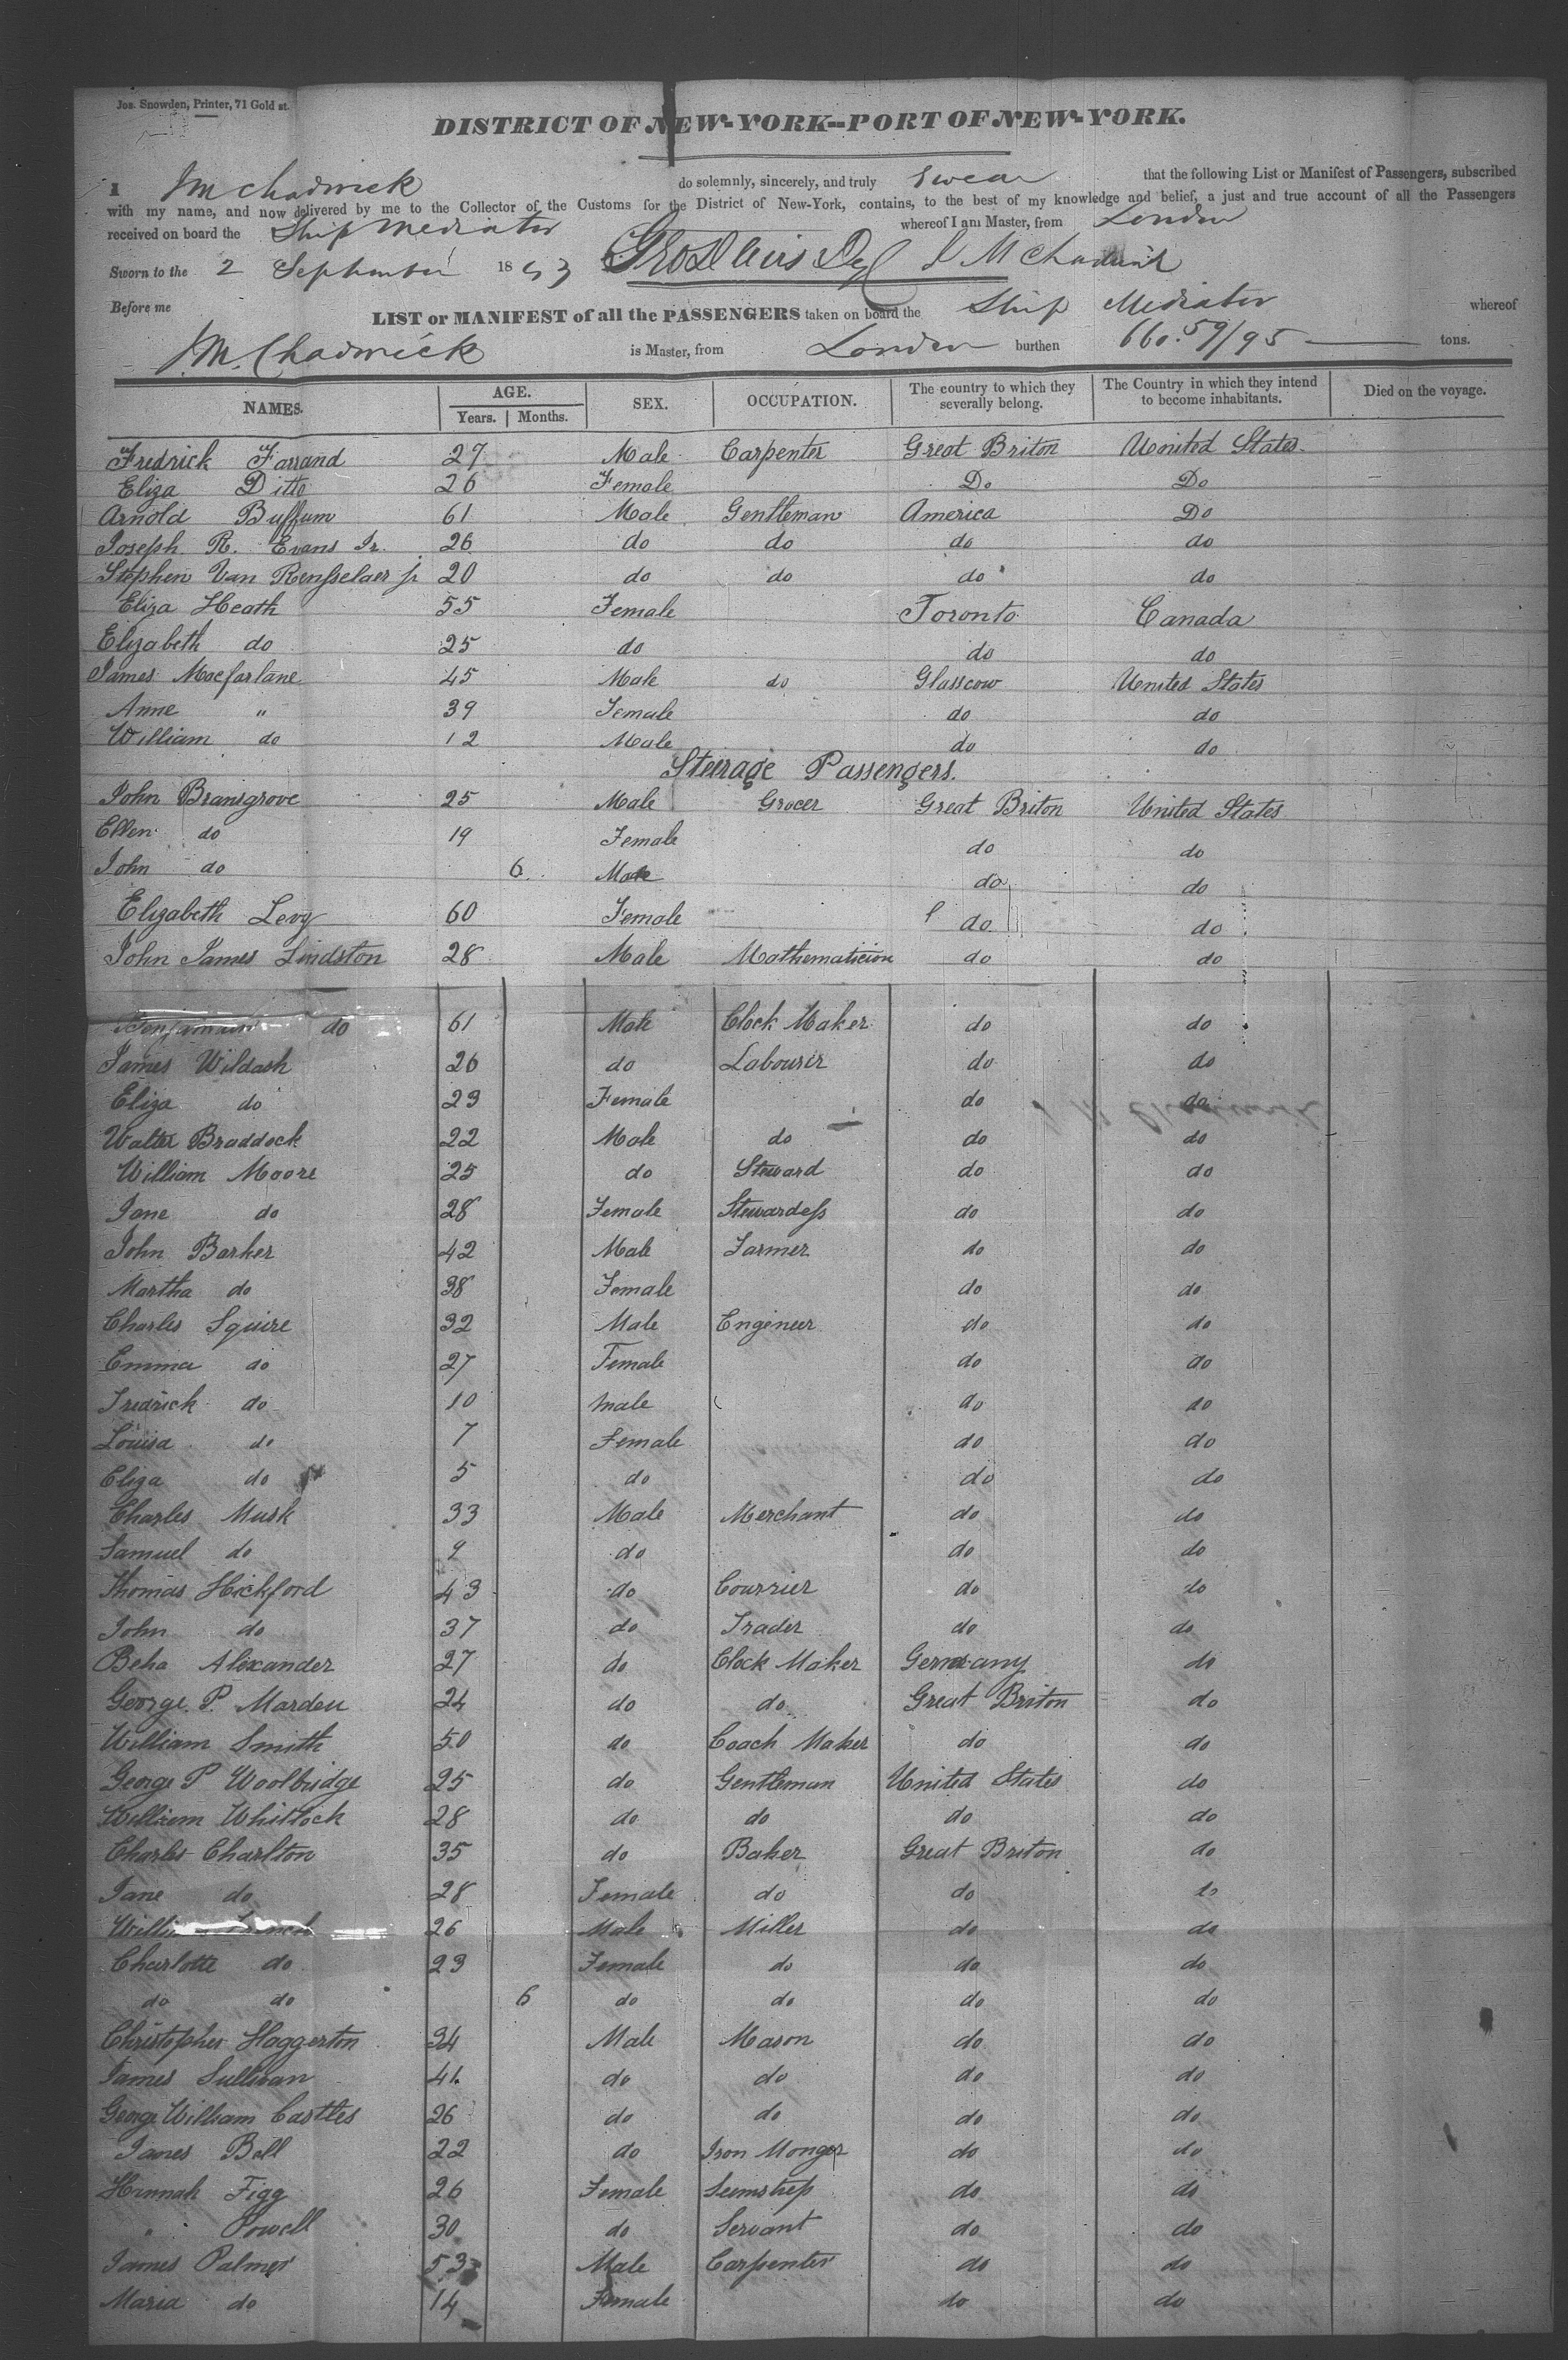 Jos. Snowden, Printer, 71 Gold st.
DISTRICT OF NEW-YORK--PORT OF NEW-YORK.
I J M Chadwick do solemnly, sincerely, and truly swear that the following List or Manifest of Passengers, subscribed
with my name, and now delivered by me to the Collector of the Customs for the District of New-York, contains, to the best of my knowledge and belief, a just and true account of all the Passengers
received on board the Ship Mediator whereof I am Master, from London
Sworn to the 2 September 18 J M Chadwick
Before me
LIST or MANIFEST of all the PASSENGERS taken on board the Ship Mediator whereof
J M. Chadwick is Master, from London burthen 660.59/95 tons.
NAMES. AGE. Years. Months. SEX. OCCUPATION. The country to which they severally belong. The Country in which they intend to become inhabitants. Died on the voyage.
Fredrick Farrand 27 Male Carpenter Great Briton United States
Eliza Ditto 26 Female Do Do
Arnold Buffum 61 Male Gentleman America Do
Joseph R. Evans Jr. 26 do do do do
Stephen Van Rensselaer jr 20 do do do do
Eliza Heath 55 Female Toronto Canada
Elizabeth do 25 do do do
James Macfarlane 45 Male do Glasscow United States
Anne " 39 Female do do
William do 12 Male do do
Steerage Passengers.
John Bransgrove 25 Male Grocer Great Briton United States
Ellen do 19 Female do do
John do 6 Male do do
Elizabeth Levy 60 Female do do
John James Lindston 28 Male Mathematicion do do
Benjamin do 61 Male Clock Maker do do
James Wildash 26 do Labourir do do
Eliza do 23 Female do do
Walter Braddock 22 Male do do do
William Moore 25 do Steward do do
Jane do 28 Female Stewardess do do
John Barker 42 Male Farmer do do
Martha do 38 Female do do
Charles Squire 32 Male Engineer do do
Emma do 27 Female do do
Fredrick do 10 male do do
Louisa do 7 Female do do
Eliza do 5 do do do
Charles Musk 33 Male Merchant do do
Samuel do 9 do do do
Thomas Hickford 43 do Courrier do do
John do 37 do Trader do do
Beha Alexander 27 do Clock Maker Germany do
George. P. Marden 24 do do Great Briton do
William Smith 50 do Coach Maker do do
George P Woolbridge 25 do Gentleman United States do
William Whitlock 28 do do do do
Charles Charlton 35 do Baker Great Briton do
Jane do 28 Female do do do
William 26 Male Miller do do
Charlotte do 23 Female do do do
do do 6 do do do do
Christopher Haggerton 34 Male Mason do do
James Sullivan 41 do do do do
George William Castles 26 do do do do
James Bell 22 do Iron Monger do do
Hannah Figg 26 Female Seemstress do do
" Powell 30 do Servant do do
James Palmer 53 Male Carpenter do do
Maria do 14 Female do do